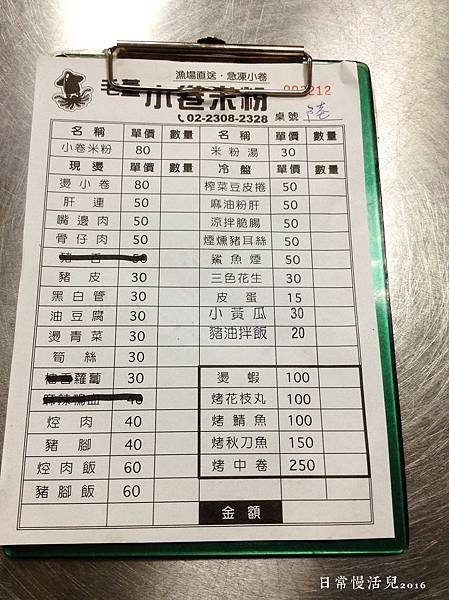 漁場直送・急凍小卷
小卷米粉
002212
02-2308-2328 桌號
名稱 單價 數量 名稱 單價 數量
小卷米粉 80 米粉湯 30
現燙 單價 數量 冷盤 單價 數量
燙小卷 80 榨菜豆皮捲 50
肝連 50 麻油粉肝 50
嘴邊肉 50 涼拌脆腸 50
骨仔肉 50 煙燻豬耳絲 50
鯊魚煙 50
豬皮 30 三色花生 30
黑白管 30 皮蛋 15
油豆腐 30 小黃瓜 30
燙青菜 30 豬油拌飯 20
筍絲 30
蘿蔔 30 燙蝦 100
麻辣鴨血 40 烤花枝丸 100
焢肉 40 烤鯖魚 100
豬腳 40 烤秋刀魚 150
焢肉飯 60 烤中卷 250
豬腳飯 60
金額
日常慢活兒2016